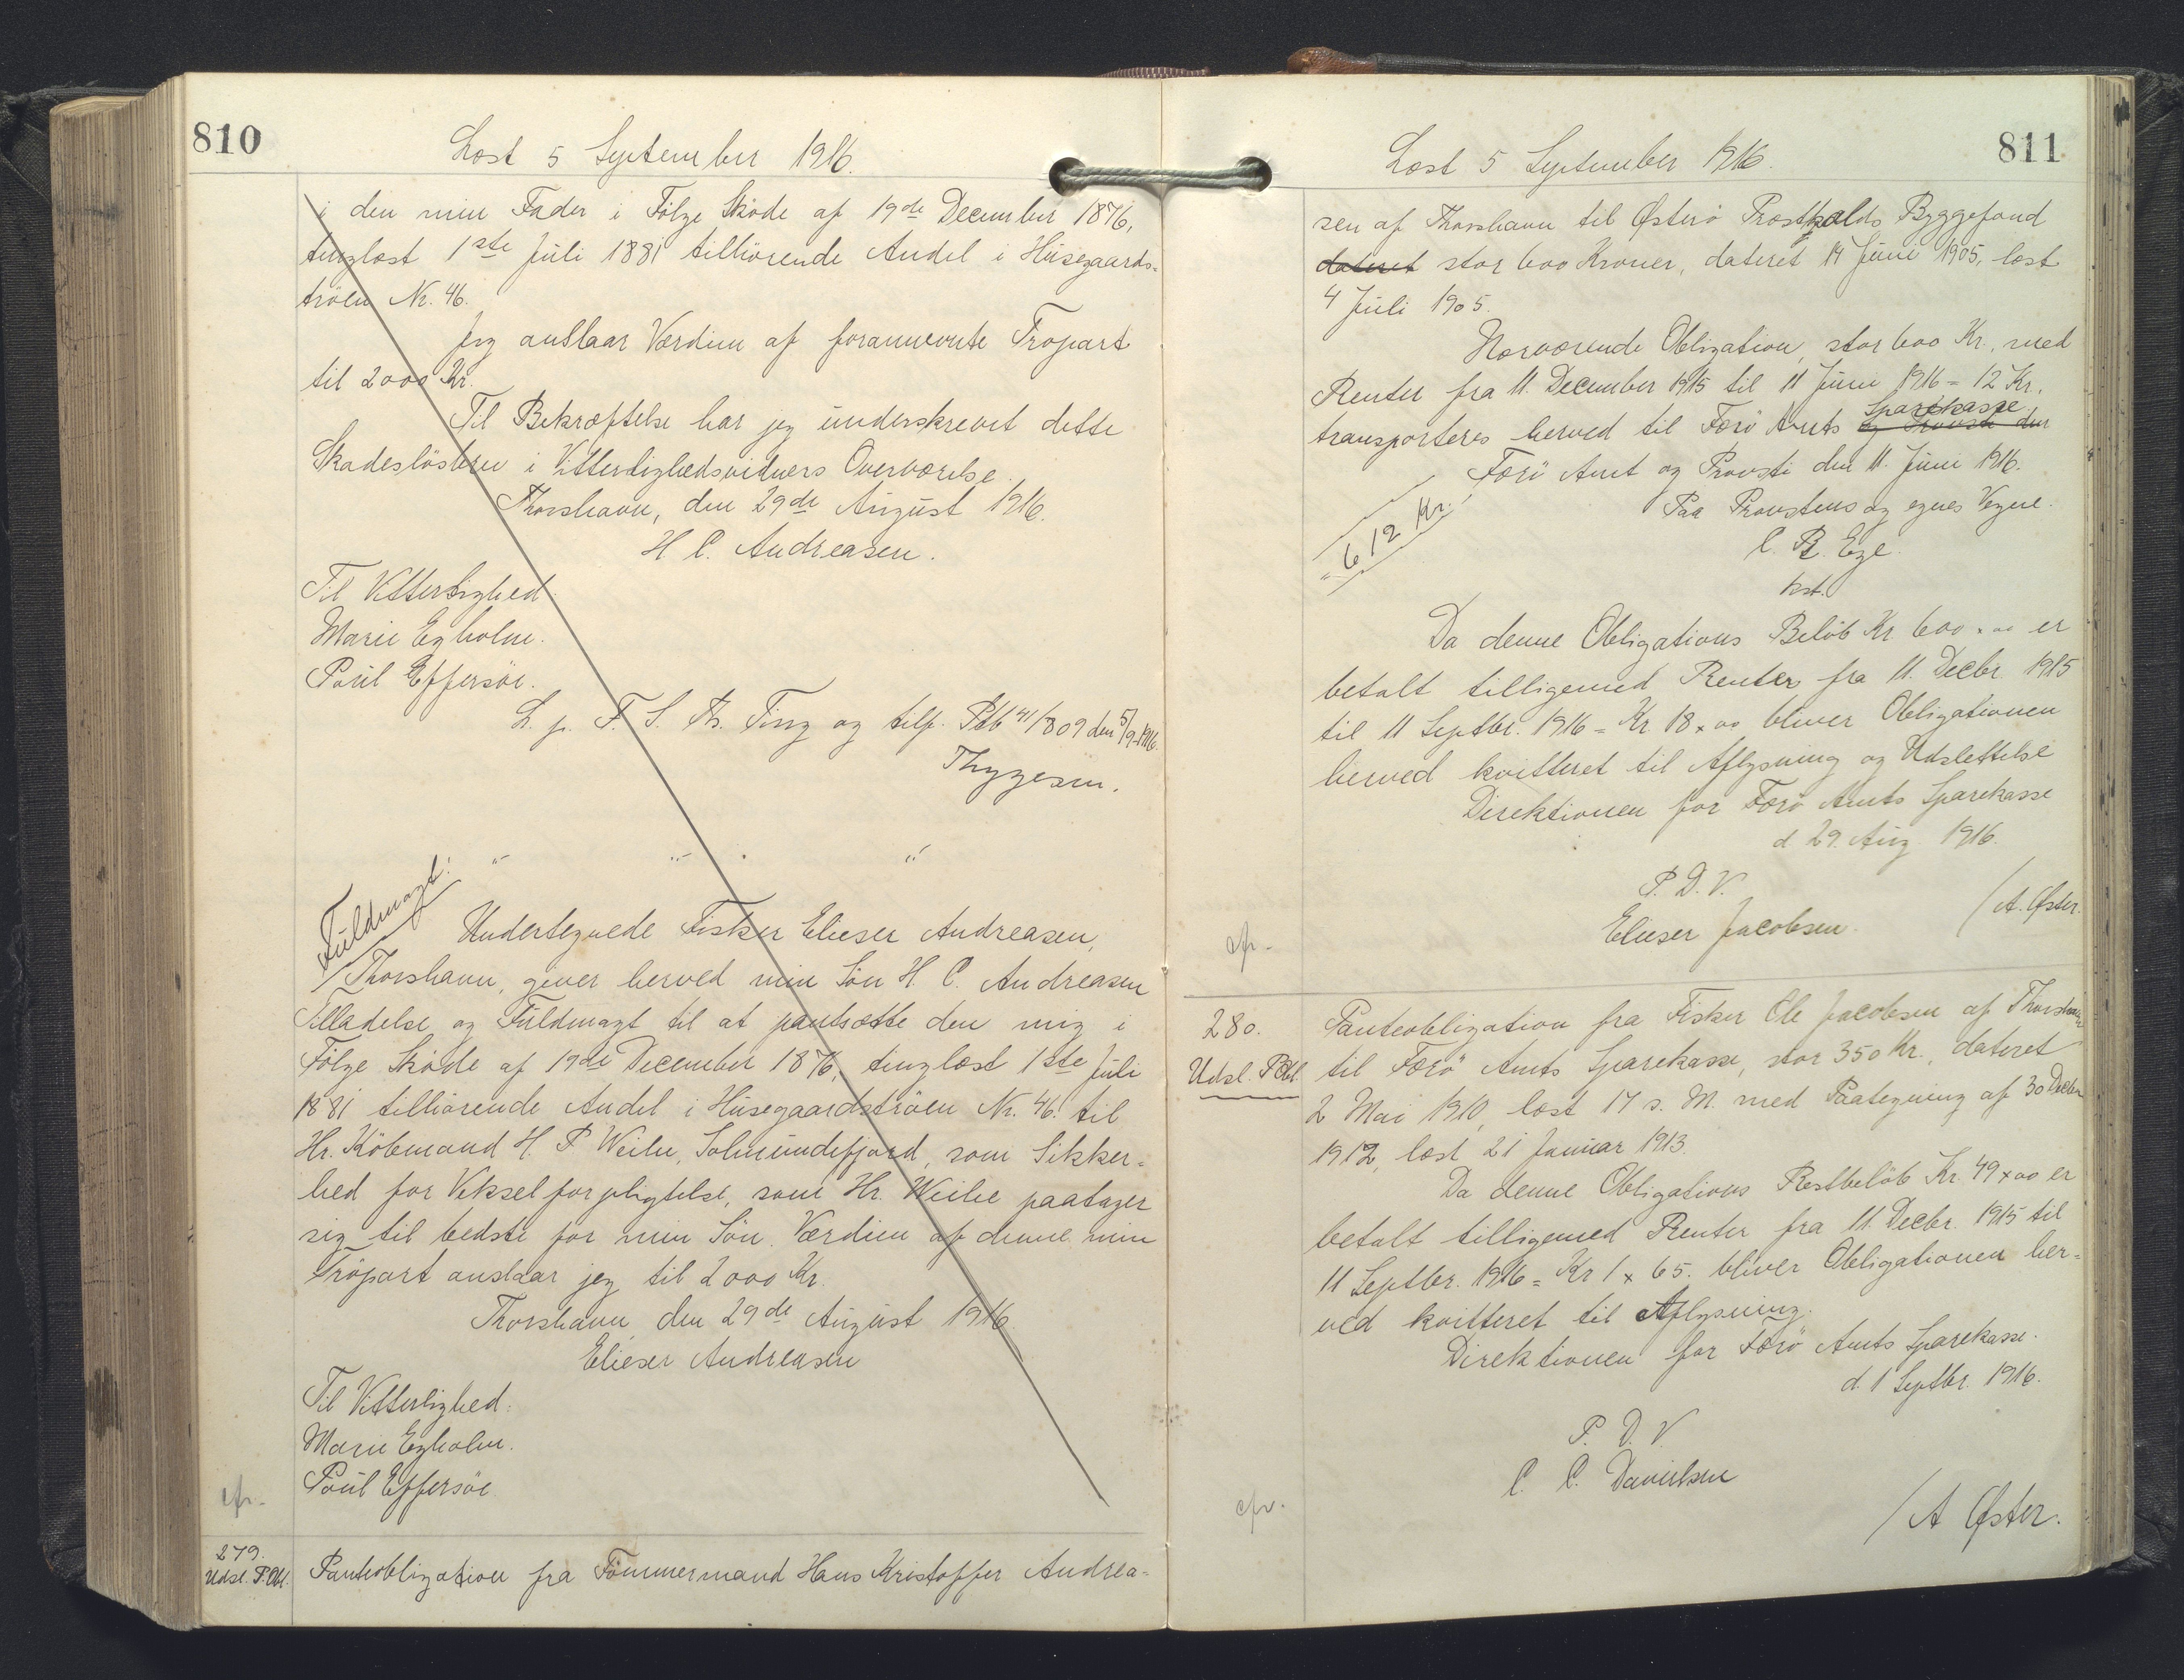 810
Læst 5 September 1916.
i den min Fader i Følge Skøde af 19de December 1876,
tinglæst 1ste Juli 1881 tilhørende Andel i Húsegaards-
trøen Nr. 46.
Jeg anslaar Værdien af forannævnte Trøpart
til 2000 Kr.
Til Bekræftelse har jeg underskrevet dette
Skadesløsbrev i Vitterlighedsvidners Overværelse.
Thorshavn, den 29de August 1916.
H C. Andreasen.
Til Vitterlighed.
Marie Egholm.
Poul Effersøe.
L. p. F. S. Th. Ting og tilf. Ptb 41/809 den 5/9-1916.
Thygesen.
" " "
Fuldmagt:
Undertegnede Fisker Elieser Andreasen,
Thorshavn, giver herved min Søn H. C. Andreasen
Tilladelse og Fuldmagt til at pantsætte den mig i
Følge Skøde af 19de December 1876, tinglæst 1ste Juli
1881 tilhørende Andel i Húsegaardstrøen Nr. 46. til
Hr. Købmand H. P Weihe, Solmundefjord, som Sikker-
hed for Vekselforpligtelse, som Hr. Weihe paatager
sig til bedste for min Søn. Værdien af denne min
Trøpart anslaar jeg til 2000 Kr.
Thorshavn, den 29de August 1916
Elieser Andreasen
Til Vitterlighed:
Marie Egholm.
Poul Effersøe.
cfr.
279.
Udsl. P.Obl.
Panteobligation fra Tømmermand Hans Kristoffer Andrea-
811
Læst 5 September 1916.
sen af Thorshavn til Østerø Præstkalds Byggefond
dateret stor 600 Kroner, dateret 14 Juni 1905, læst
4 Juli 1905.
Nærværende Obligation, stor 600 Kr., med
Renter fra 11. December 1915 til 11 Juni 1916 = 12 Kr.
Sparekasse.
transporteres herved til Færø Amts og Provsti den
Færö Amt og Provsti den 11. Juni 1916.
" 612 Kr.
Paa Provstens og egnes Vegne.
C. B. Ege.
kst.
Da denne Obligations Beløb Kr 600 x 00 er
betalt tilligemed Renter fra 11. Decbr. 1915
til 11 Septbr. 1916 = Kr. 18 x 00 bliver Obligationen
herved kvitteret til Aflysning og Udslettelse
Direktionen for Færø Amts Sparekasse
d. 29. Aug. 1916.
P. D. V.
Elieser Jacobsen.
/A. Øster.
cfr.
280.
Udsl. P.Obl.
Panteobligation fra Fisker Ole Jacobsen af Thorshavn
til Færö Amts Sparekasse, stor 350 Kr., dateret
2 Mai 1910, læst 17 s. M. med Paategning af 30 Decbr
1912, læst 21 Januar 1913.
Da denne Obligations Restbeløb Kr. 49 x 00 er
betalt tilligemed Renter fra 11. Decbr. 1915 til
11 Septbr. 1916 = Kr 1 x 65. bliver Obligationen her-
ved kvitteret til Aflysning.
Direktionen for Færø Amts Sparekasse.
d. 1 Septbr. 1916.
P. D. V
C. C. Danielsen
/A Øster.
cfr.